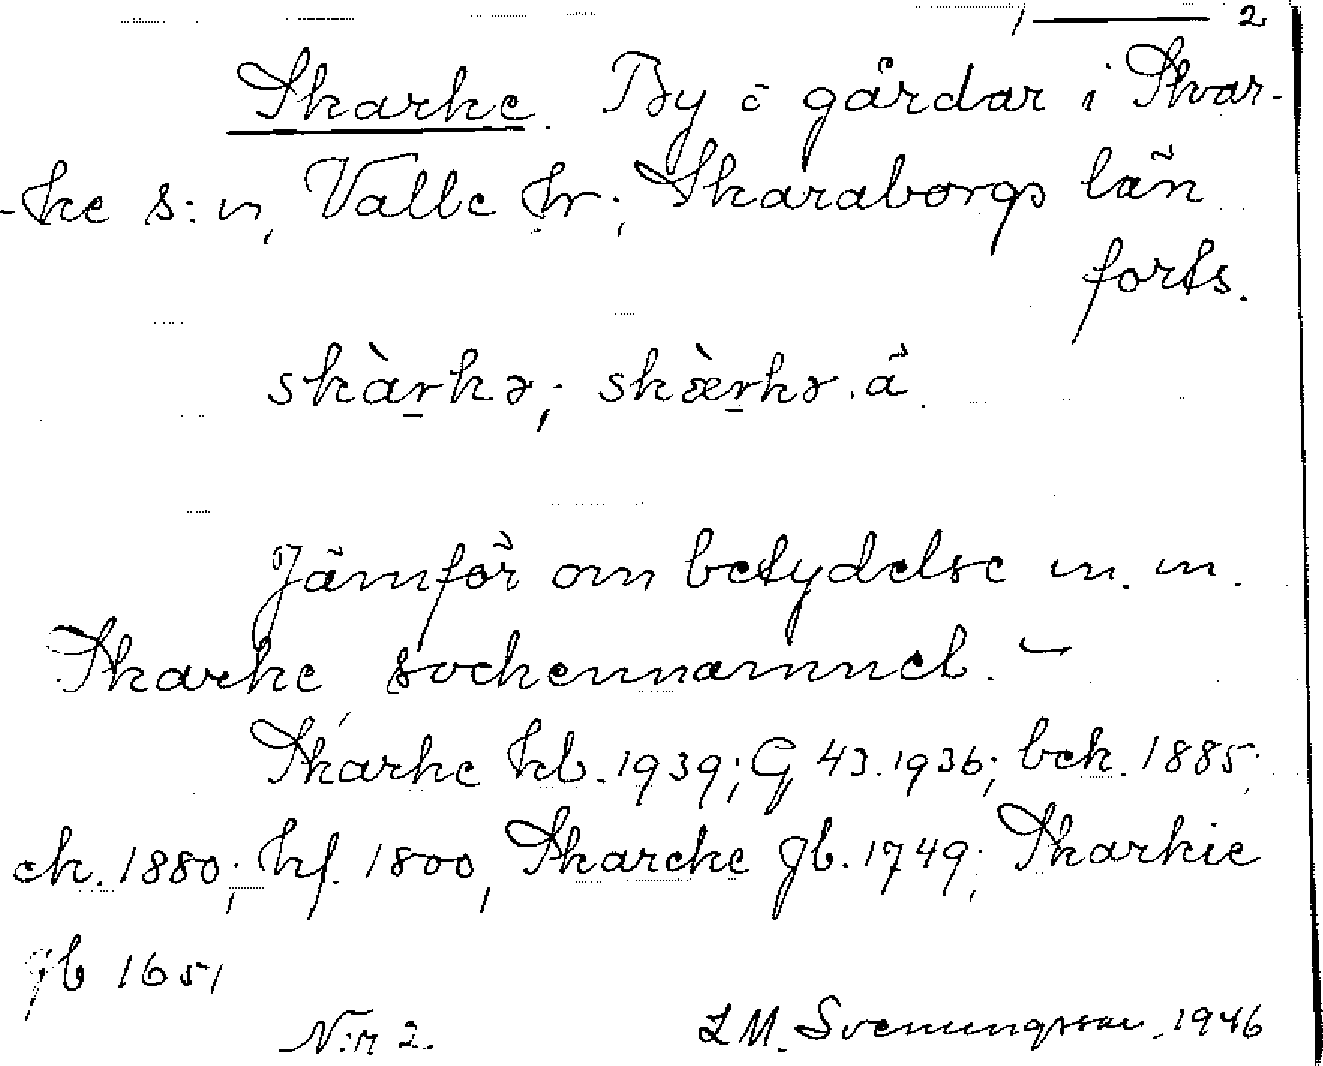 1 — 2
Skarke. By o gårdar i Skar-
-ke s:n, Valle hr; Skaraborgs län
forts.
skàrkə; skæ̀rkə. ä.
Jämför om betydelse m. m.
Skarke sockennamnet. –
Skarke kb. 1939; G 43. 1936; bek. 1885;
ek. 1880; hf. 1800, Skarcke gb. 1749; Skarkie
jb 1651
N:r 2. L M. Svenungsson. 1946